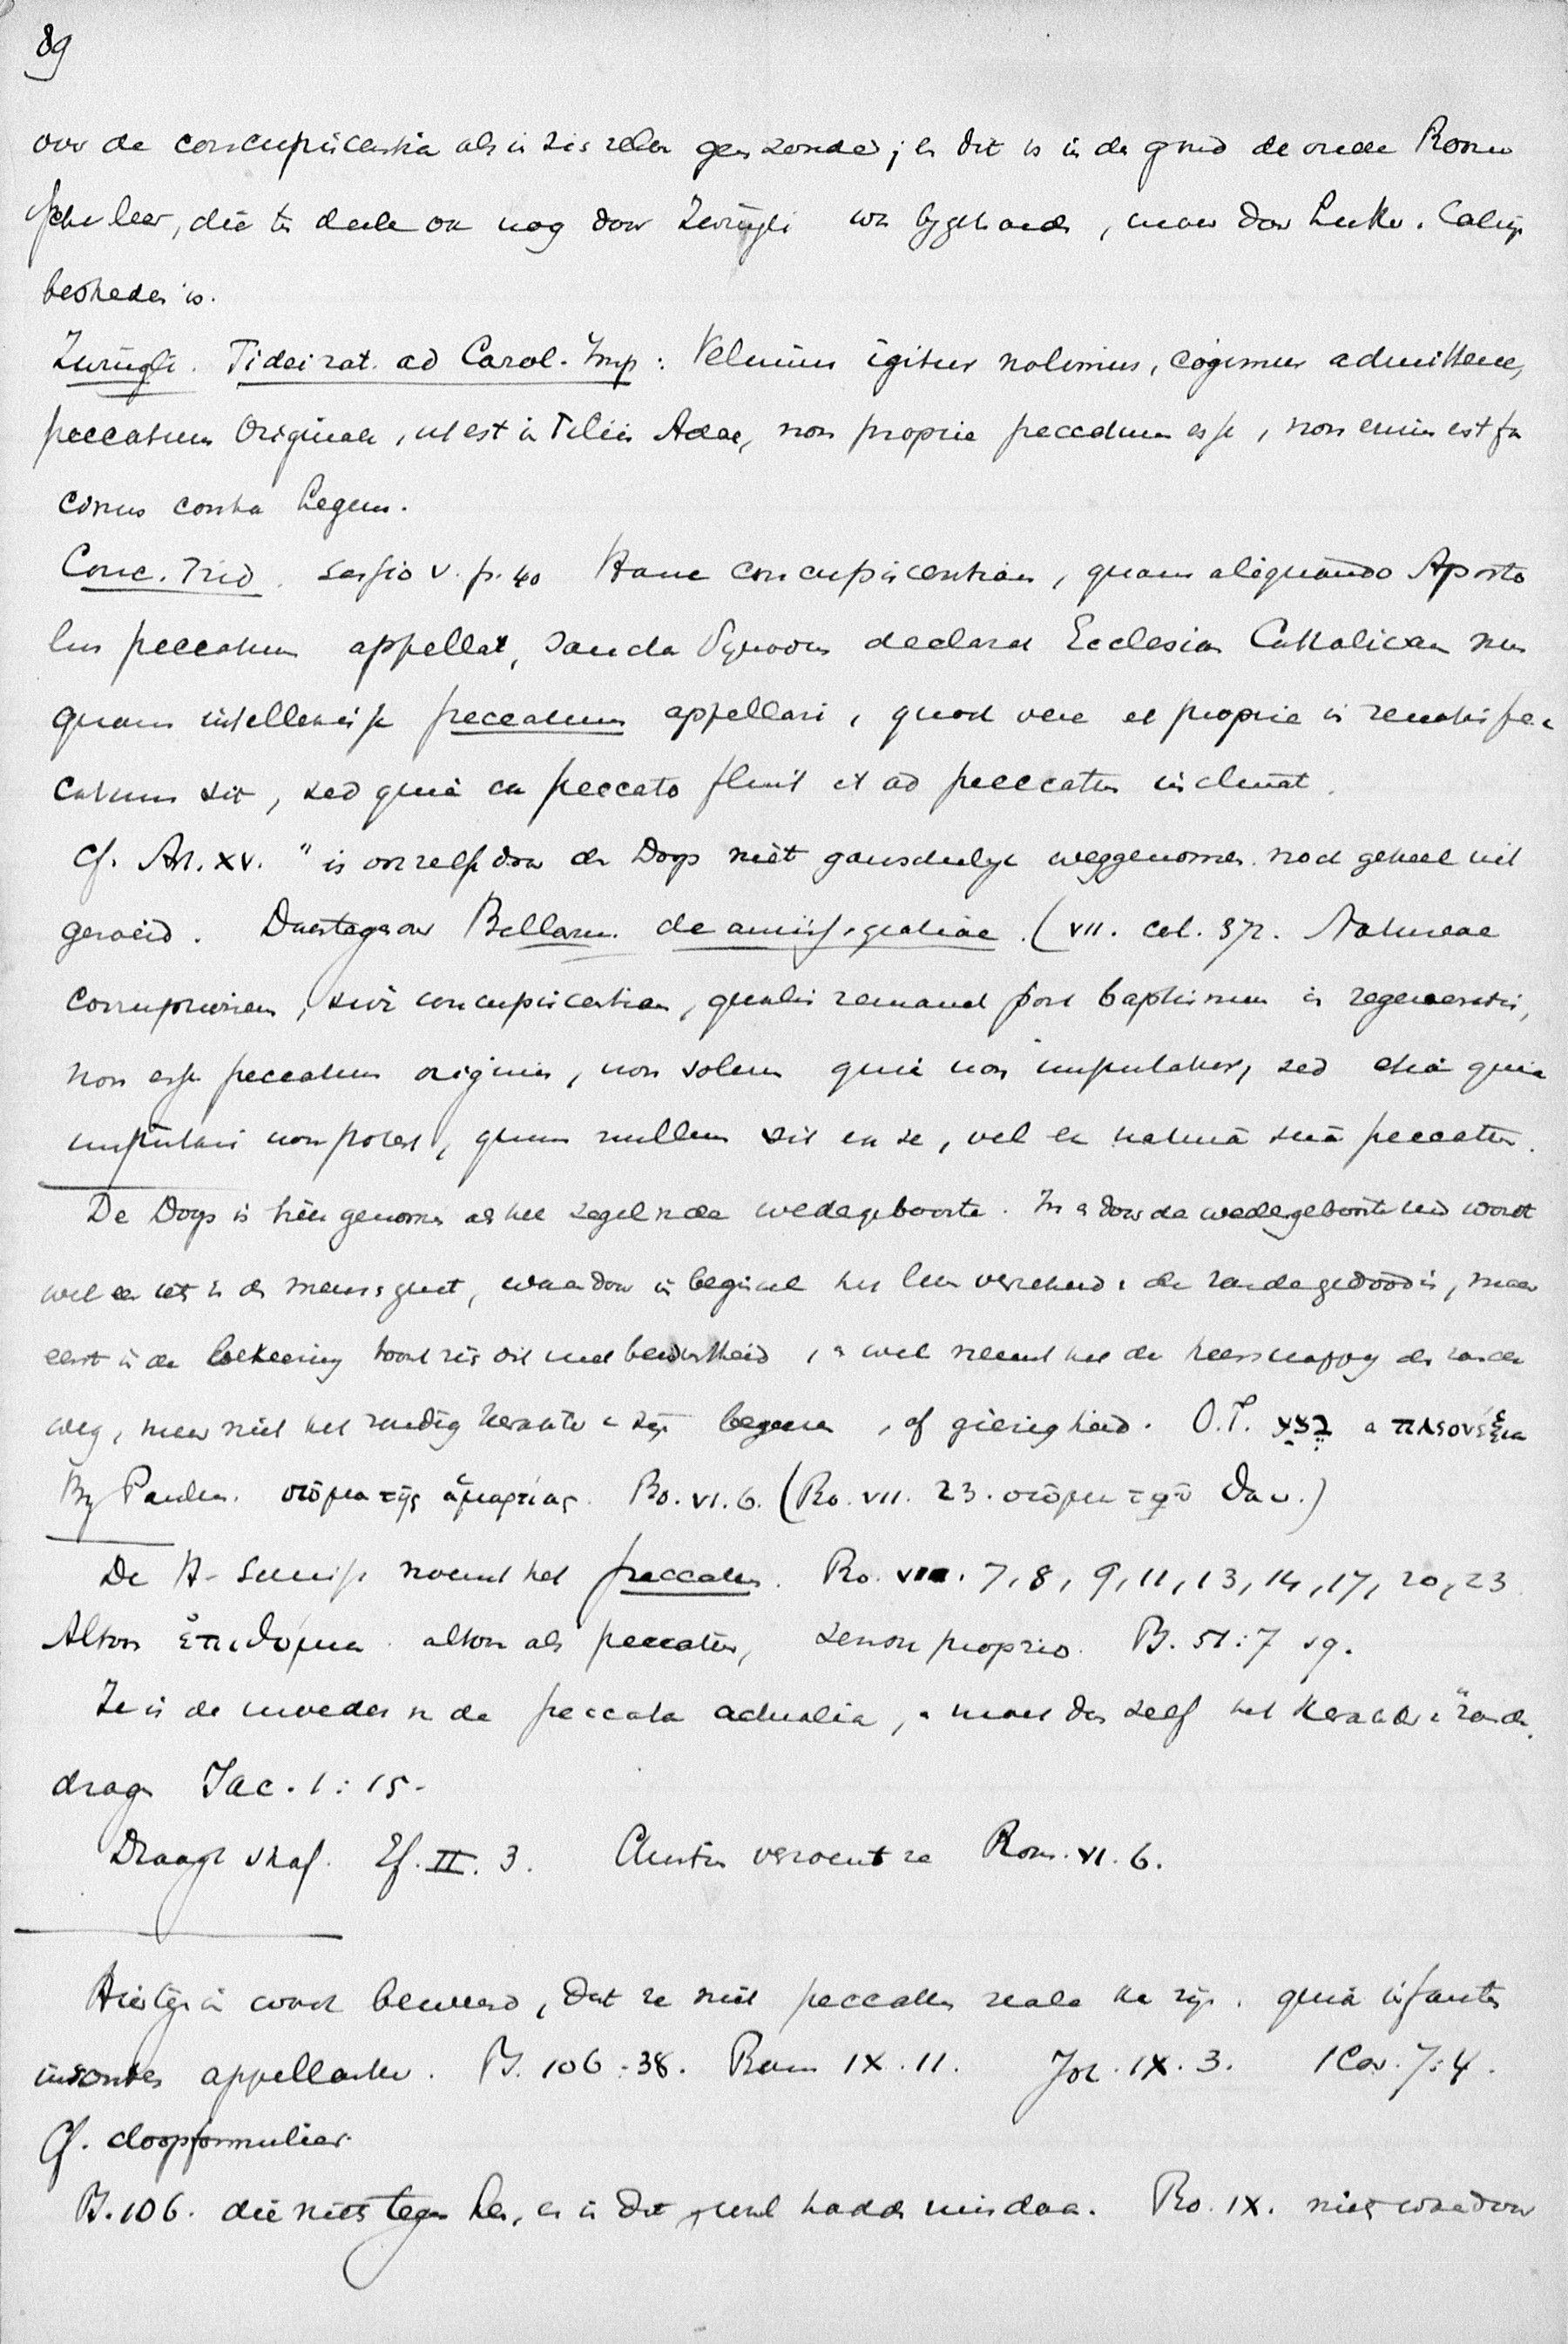 89
over de concupiscentia als in zich zelven geen zonde; en dit is in den grond de oude Room
sche leer, die ten deele ook nog door Zwingli was bijgehouden, maar door Luther . Calvijn
bestreden is.
Zwingli. Fidei rat. ad Carol. Imp: Velimus igitur nolimus, cogimur admittere,
peccatum Originale, ut est in filiis Adae, non proprie peccatum esse, non enim est fa
cinus contra Legem.
Conc. Trid. Sessio V. p. 40 Hanc concupiscentiam, quam aliquando Aposto
lus peccatum appellat, Sancta Synodus declarat Ecclesiam Catholicam nun
quam intellexisse peccatum appellari, quod vere et proprie in renatis pec
catum sit, sed quia ex peccato fluit et ad peccatum inclinat.
Cf. Art. XV. " is ook zelfs door den Doop niet ganschelijk weggenomen noch geheel uit
geroeid. Daartegenover Bellarm. de amiss. gratiae. (VII. col. 372. Naturae
corruptionem, sive concupiscentiam, qualis remanet post baptismum in regeneratis,
non esse peccatum originis, non solum quia non imputatur, sed etiam quia
imputari non potest, quum nullum sit ex se, vel ex natura sua peccatum.
De Doop is hier genomen als het zegel v. de wedergeboorte. In en door de wedergeboorte nu wordt
wel een iets in den mensch gezet, waardoor in beginsel het leven verzekerd en de zonde gedood is, maar
eerst in de bekeering toont zich dit met bewustheid, en wel neemt het de heerschappij der zonde
weg, maar niet het zondig karakter v. zijn begeeren, of gierigheid. O.T. בצע en πλεονεξια
Bij Paulus. σῶμα τῆς ἁμαρτίας. Ro. VI. 6. (Ro. VII. 23. σῶμα τοῦ θαν.)
De H. Schrift noemt het peccatum. Ro. VII. 7, 8, 9, 11, 13, 14, 17, 20, 23
Altoos ἐπιθυμια altoos als peccatum, sensu proprio. Ps. 51:7 vg.
Ze is de moeder v. de peccata actualia, en moet dus zelf het karakter v. zonde
dragen Jac. 1:15.
Draagt straf. Ef. II. 3. Christus verzoent ze Rom. VI. 6.
Hiertegen wordt beweerd, dat ze niet peccatum reale kan zijn. quia infantes
insontes appellantur. Ps. 106:38. Rom IX. 11. Joh. IX. 3. 1 Cor. 7:4.
Cf. doopformulier.
Ps. 106. die niets tegen hen, en in dit geval hadden misdaan. Ro. IX. niets waardoor